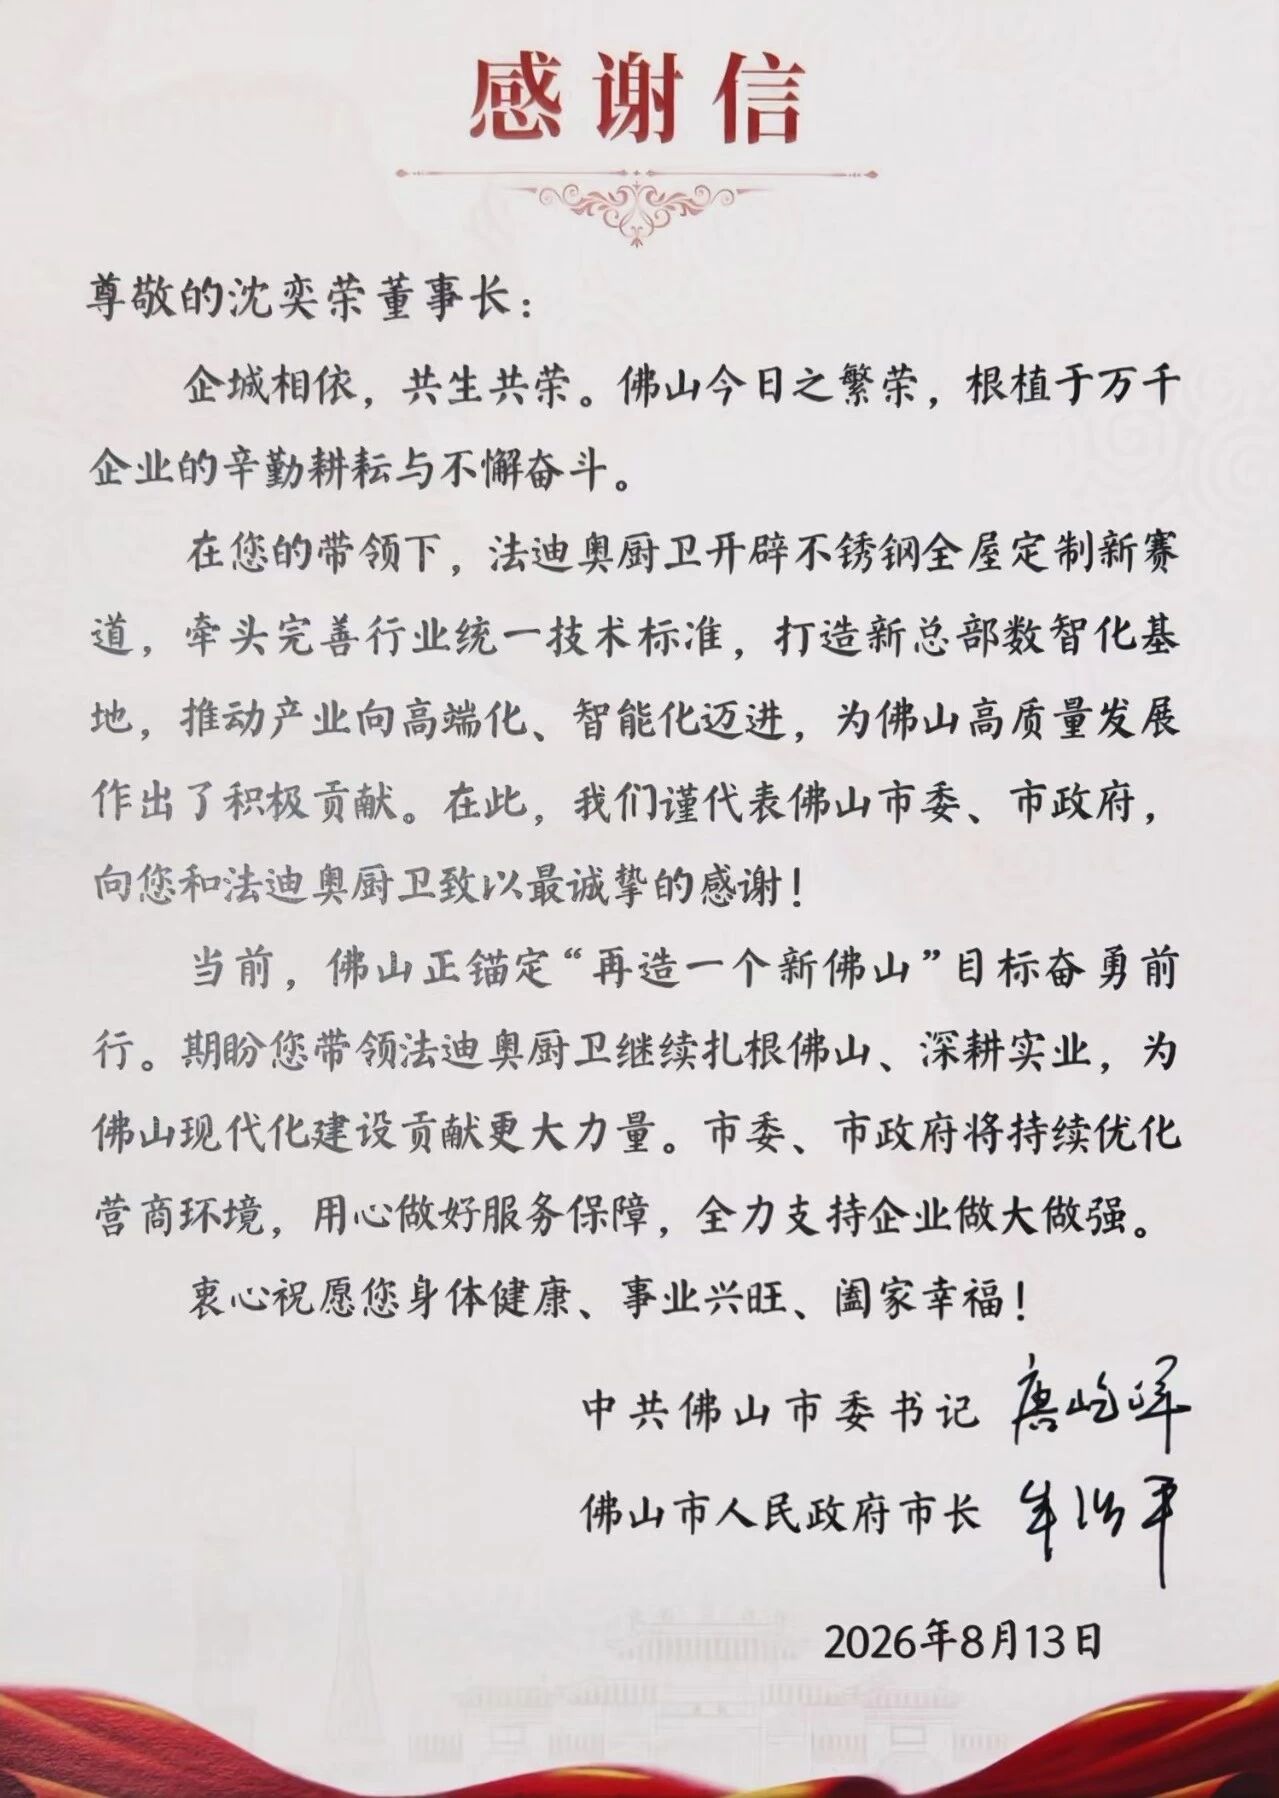 感谢信
尊敬的沈奕荣董事长：
企城相依，共生共荣。佛山今日之繁荣，根植于万千
企业的辛勤耕耘与不懈奋斗。
在您的带领下，法迪奥厨卫开辟不锈钢全屋定制新赛
道，牵头完善行业统一技术标准，打造新总部数智化基
地，推动产业向高端化、智能化迈进，为佛山高质量发展
作出了积极贡献。在此，我们谨代表佛山市委、市政府，
向您和法迪奥厨卫致以最诚挚的感谢！
当前，佛山正锚定“再造一个新佛山”目标奋勇前
行。期盼您带领法迪奥厨卫继续扎根佛山、深耕实业，为
佛山现代化建设贡献更大力量。市委、市政府将持续优化
营商环境，用心做好服务保障，全力支持企业做大做强。
衷心祝愿您身体健康、事业兴旺、阖家幸福！
中共佛山市委书记 唐屹峰
佛山市人民政府市长
2026年8月13日